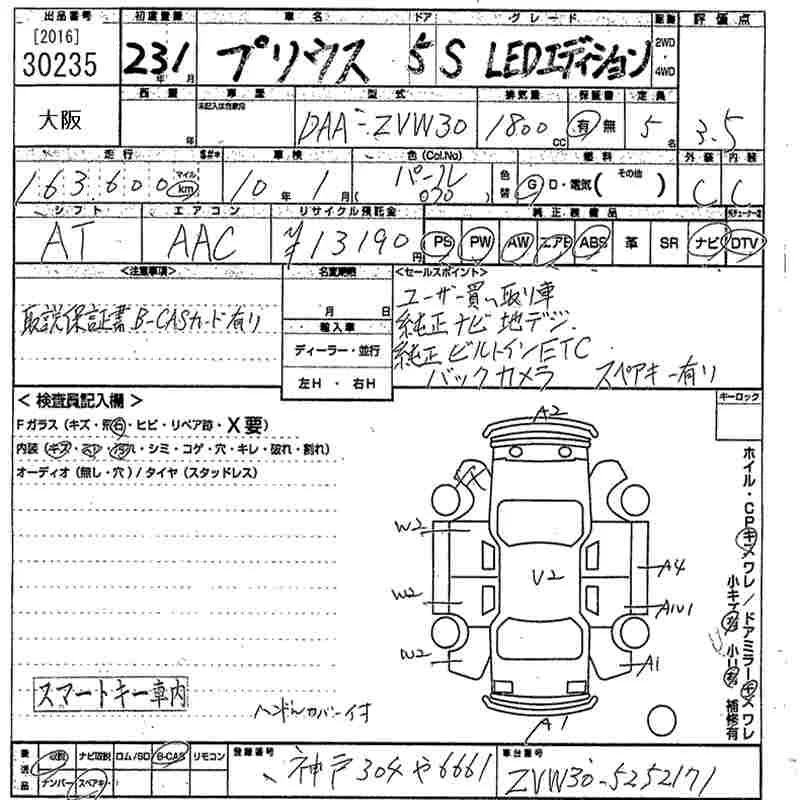 出品番号 初度登録 車名 ドア グレード 駆動 評価点
[2016]
30235
23年1月 プリウス 5 S LEDエディション 2WD・4WD
大阪
車歴 型式 排気量 保証書 定員
未記入は自家用
年 月 DAA-ZVW30 1800cc 有 無 5名 3.5
走行 車検 色(Col.No) 燃料 外装 内装
163,600 マイル km 10年1月 パール (070) 色替 G D・電気( その他 ) C C
シフト エアコン リサイクル預託金 純正装備品
AT AAC ¥13190円 PS PW AW エアB ABS 革 SR ナビ DTV
<注意事項> 名変期限 <セールスポイント>
取説保証書 B-CASカード有り
月 日
輸入車
ディーラー・並行
左H・右H
ユーザー買い取り車
純正ナビ 地デジ
純正ビルトインETC
バックカメラ スペアキー有り
<検査員記入欄> キーロック
Fガラス(キズ・飛石・ヒビ・リペア跡・X要)
内装(キズ・ヨゴレ・シミ・コゲ・穴・キレ・破れ・割れ)
オーディオ(無し・穴)/タイヤ(スタッドレス)
A2
W2
W2
W2
V2
A4
A1
A1
ホイル・CPキズワレ/ドアミラーキズワレ
補修有
スマートキー車内
ハンドルカバー付
後送品 取説 ナビ取説 ロム/SD B-CAS リモコン
ナンバー スペアキー
登録番号 神戸304や6661
車台番号 ZVW30-5252171